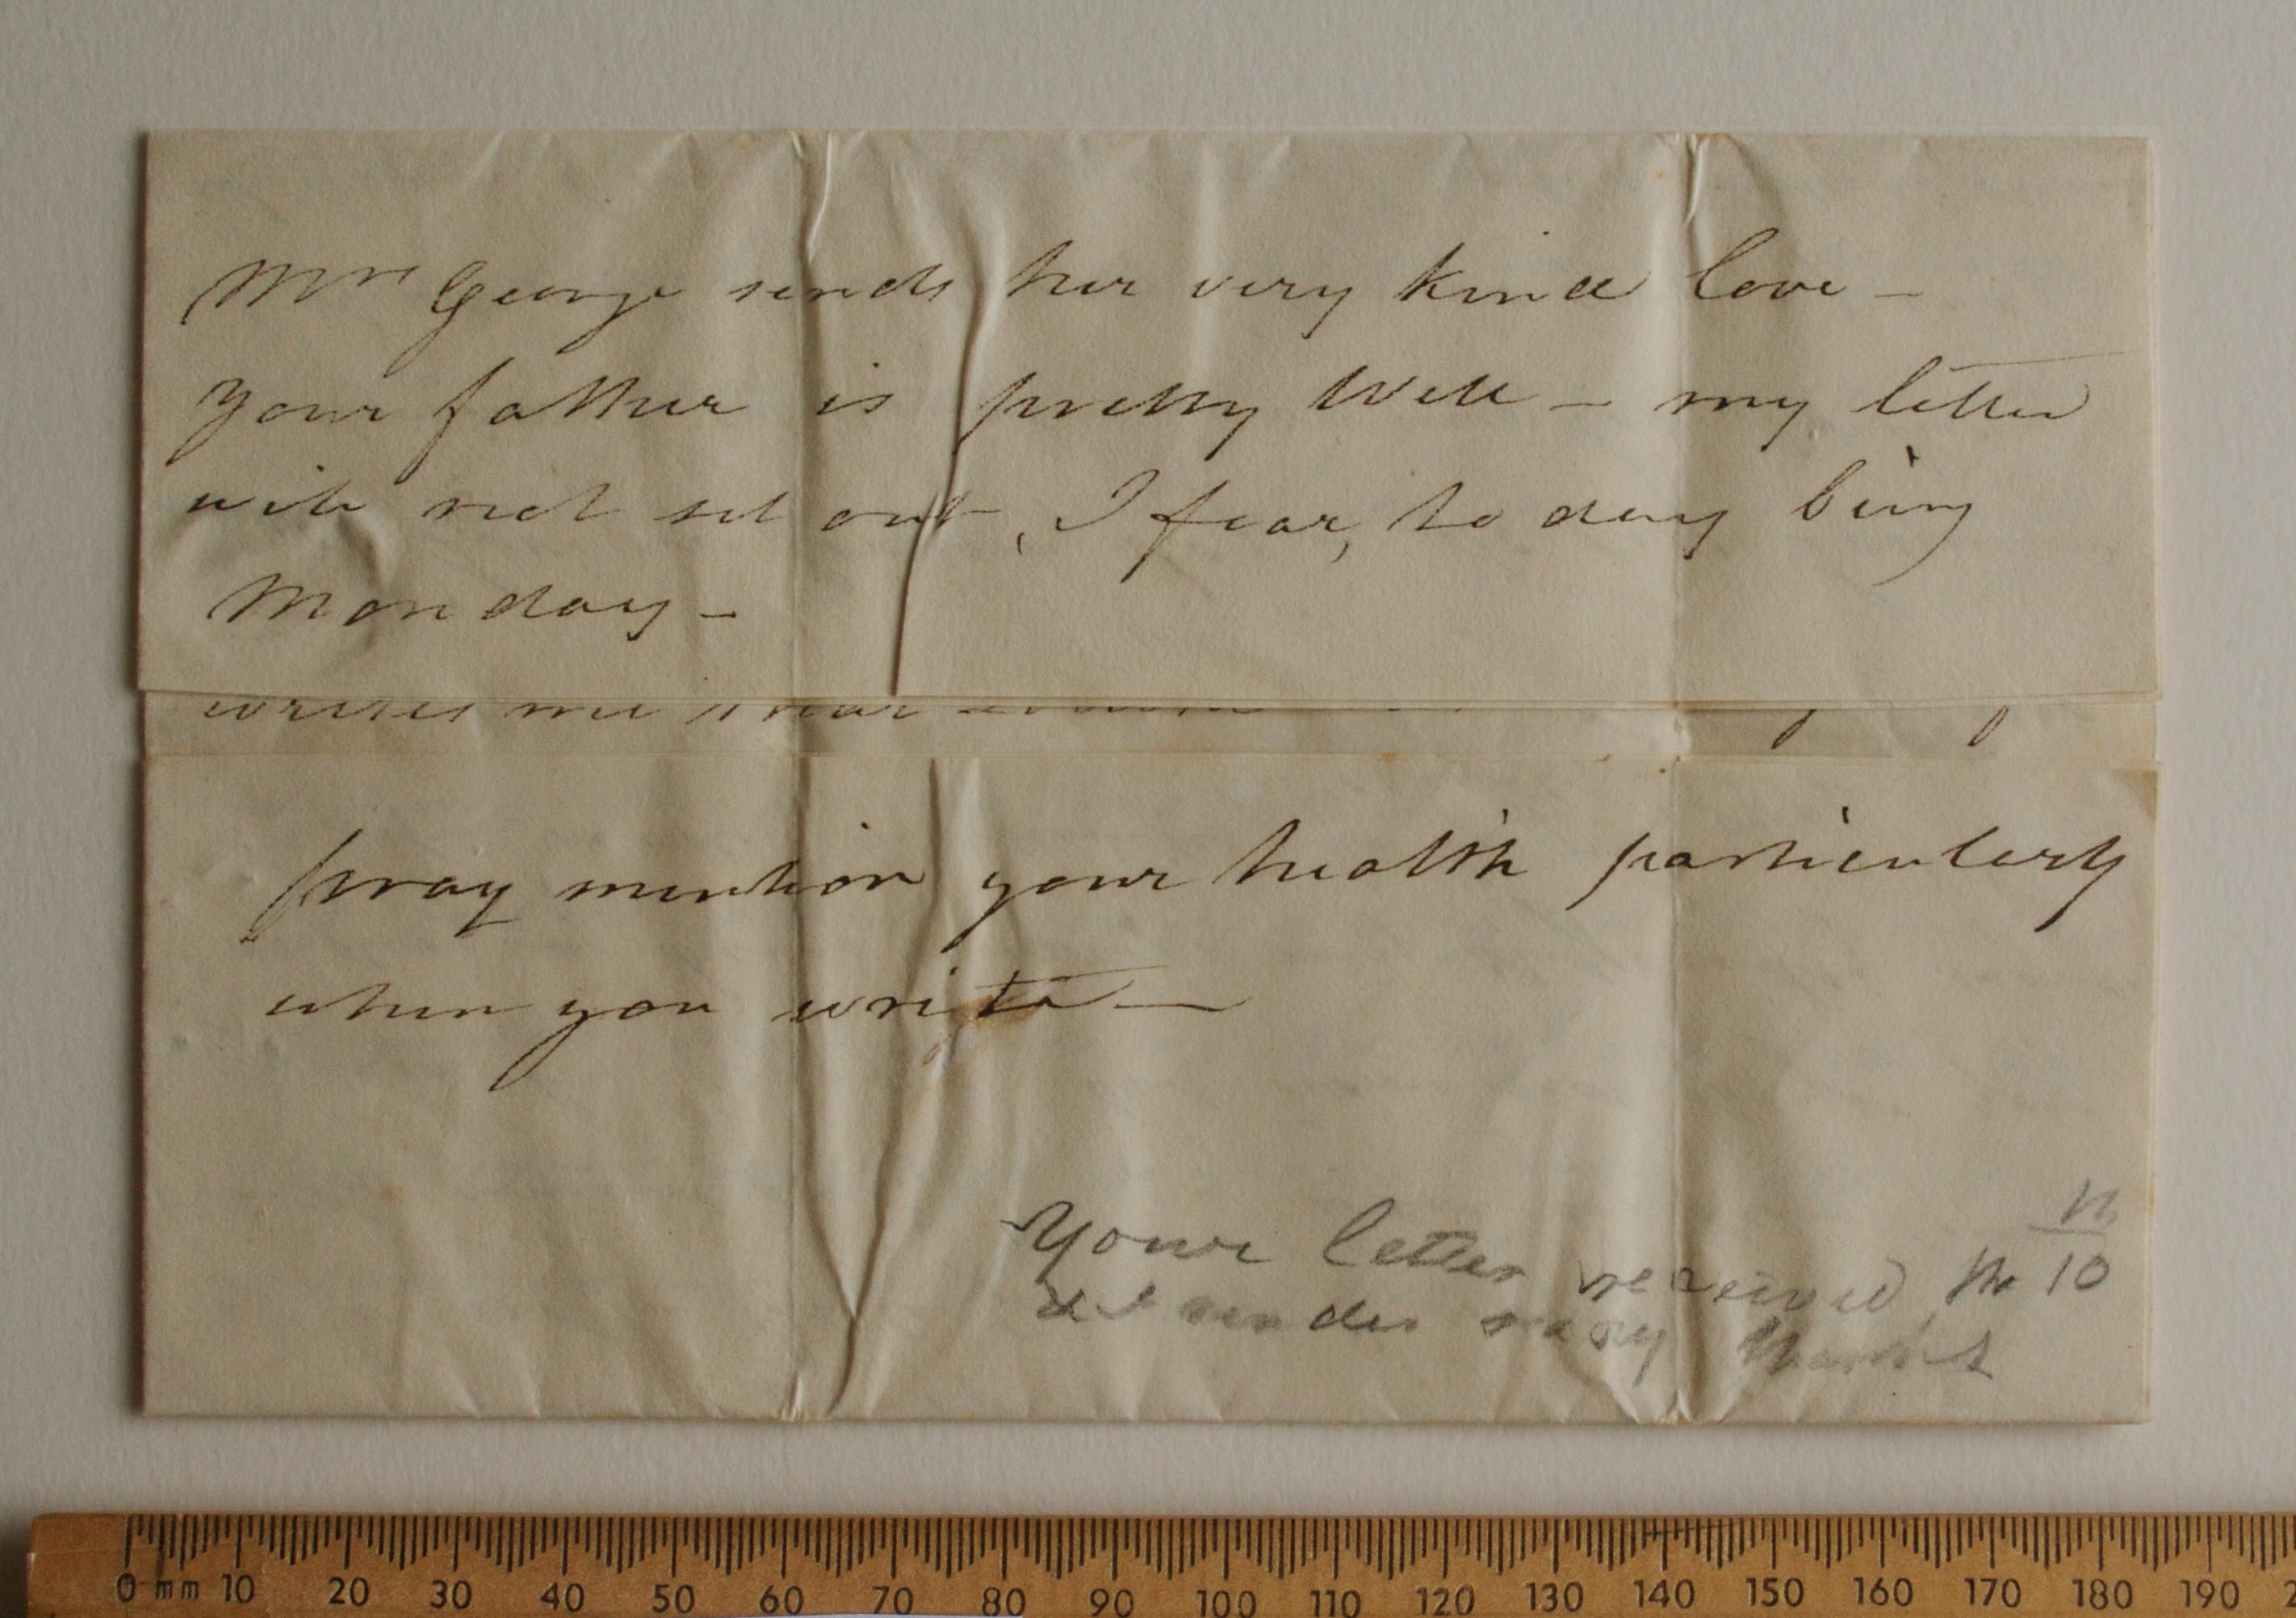 Mrs George sends her very kind love -
Your father is pretty well - my letter
will not set out, I fear, to day being
Monday -
writes me
pray mention your health particularly
when you write —
Your letter received the 10th
sender many thanks
0 mm 10 20 30 40 50 60 70 80 90 100 110 120 130 140 150 160 170 180 190